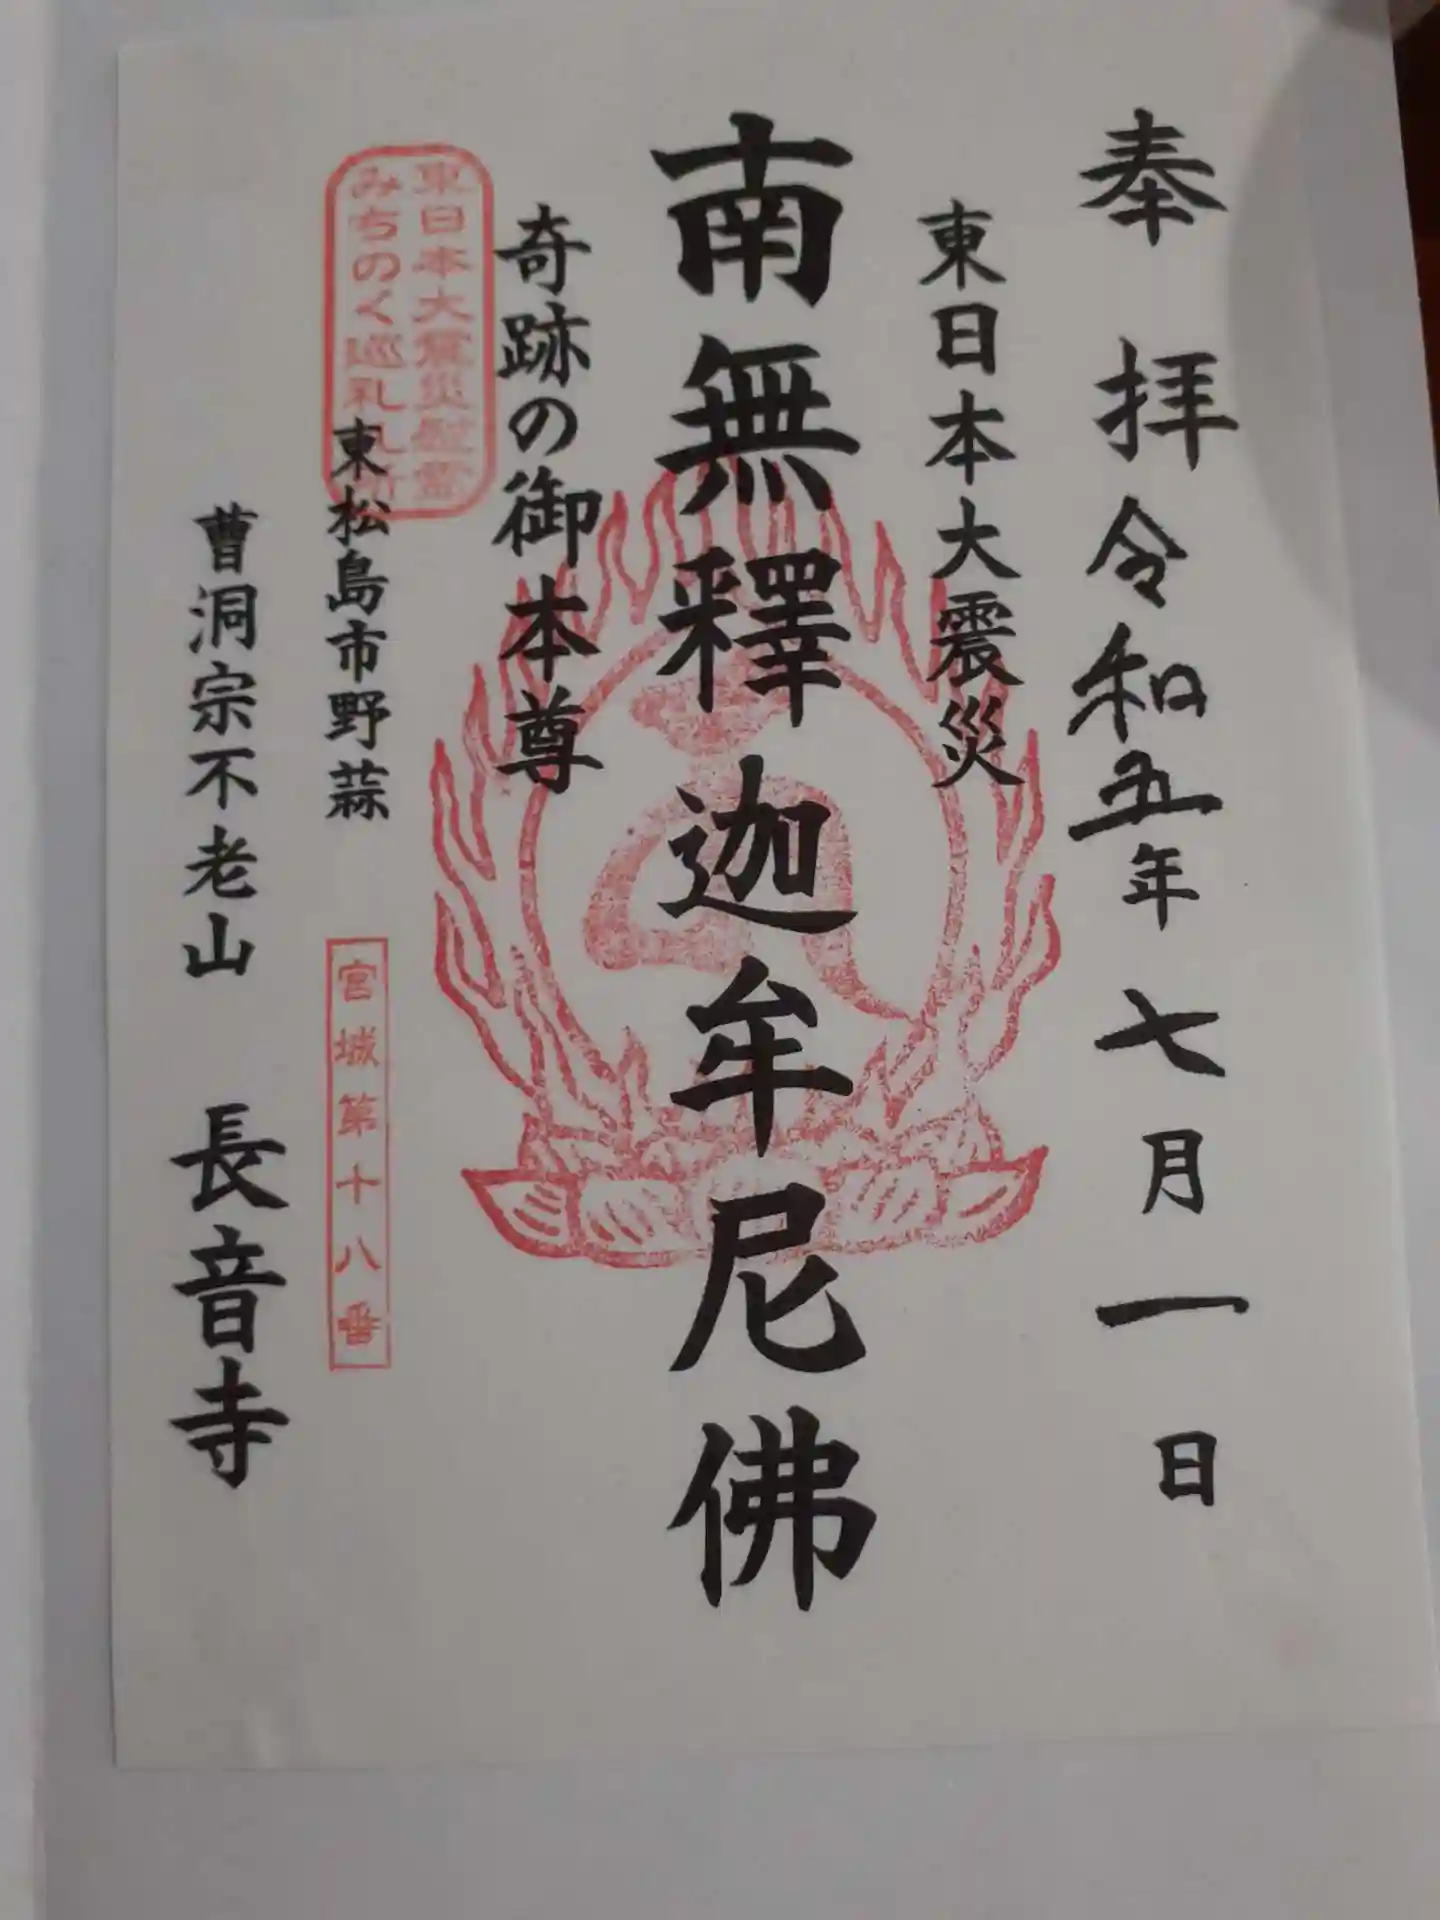 奉拝 令和五年七月一日
東日本大震災
南無釋迦牟尼佛
奇跡の御本尊
東日本大震災慰霊
みちのく巡礼札所
東松島市野蒜
宮城第十八番
曹洞宗不老山 長音寺